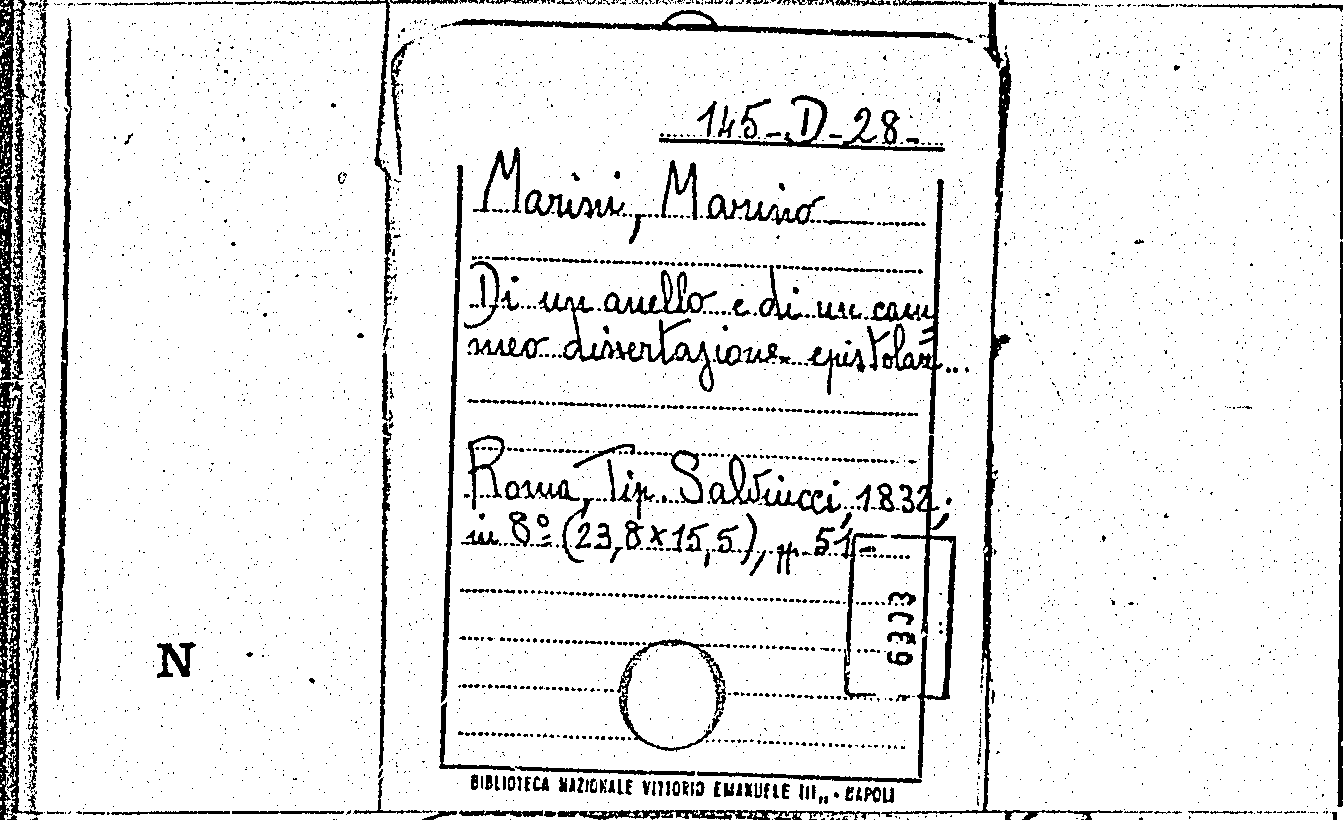 145-D-28-
Marini, Marino
Di un anello e di un cam=
meo dissertazione epistolar...
Roma, Tip. Salviucci, 1832;
in 8º (23,8x15,5), pp 51-
N
BIBLIOTECA NAZIONALE VITTORIO EMANUELE III„ - NAPOLI